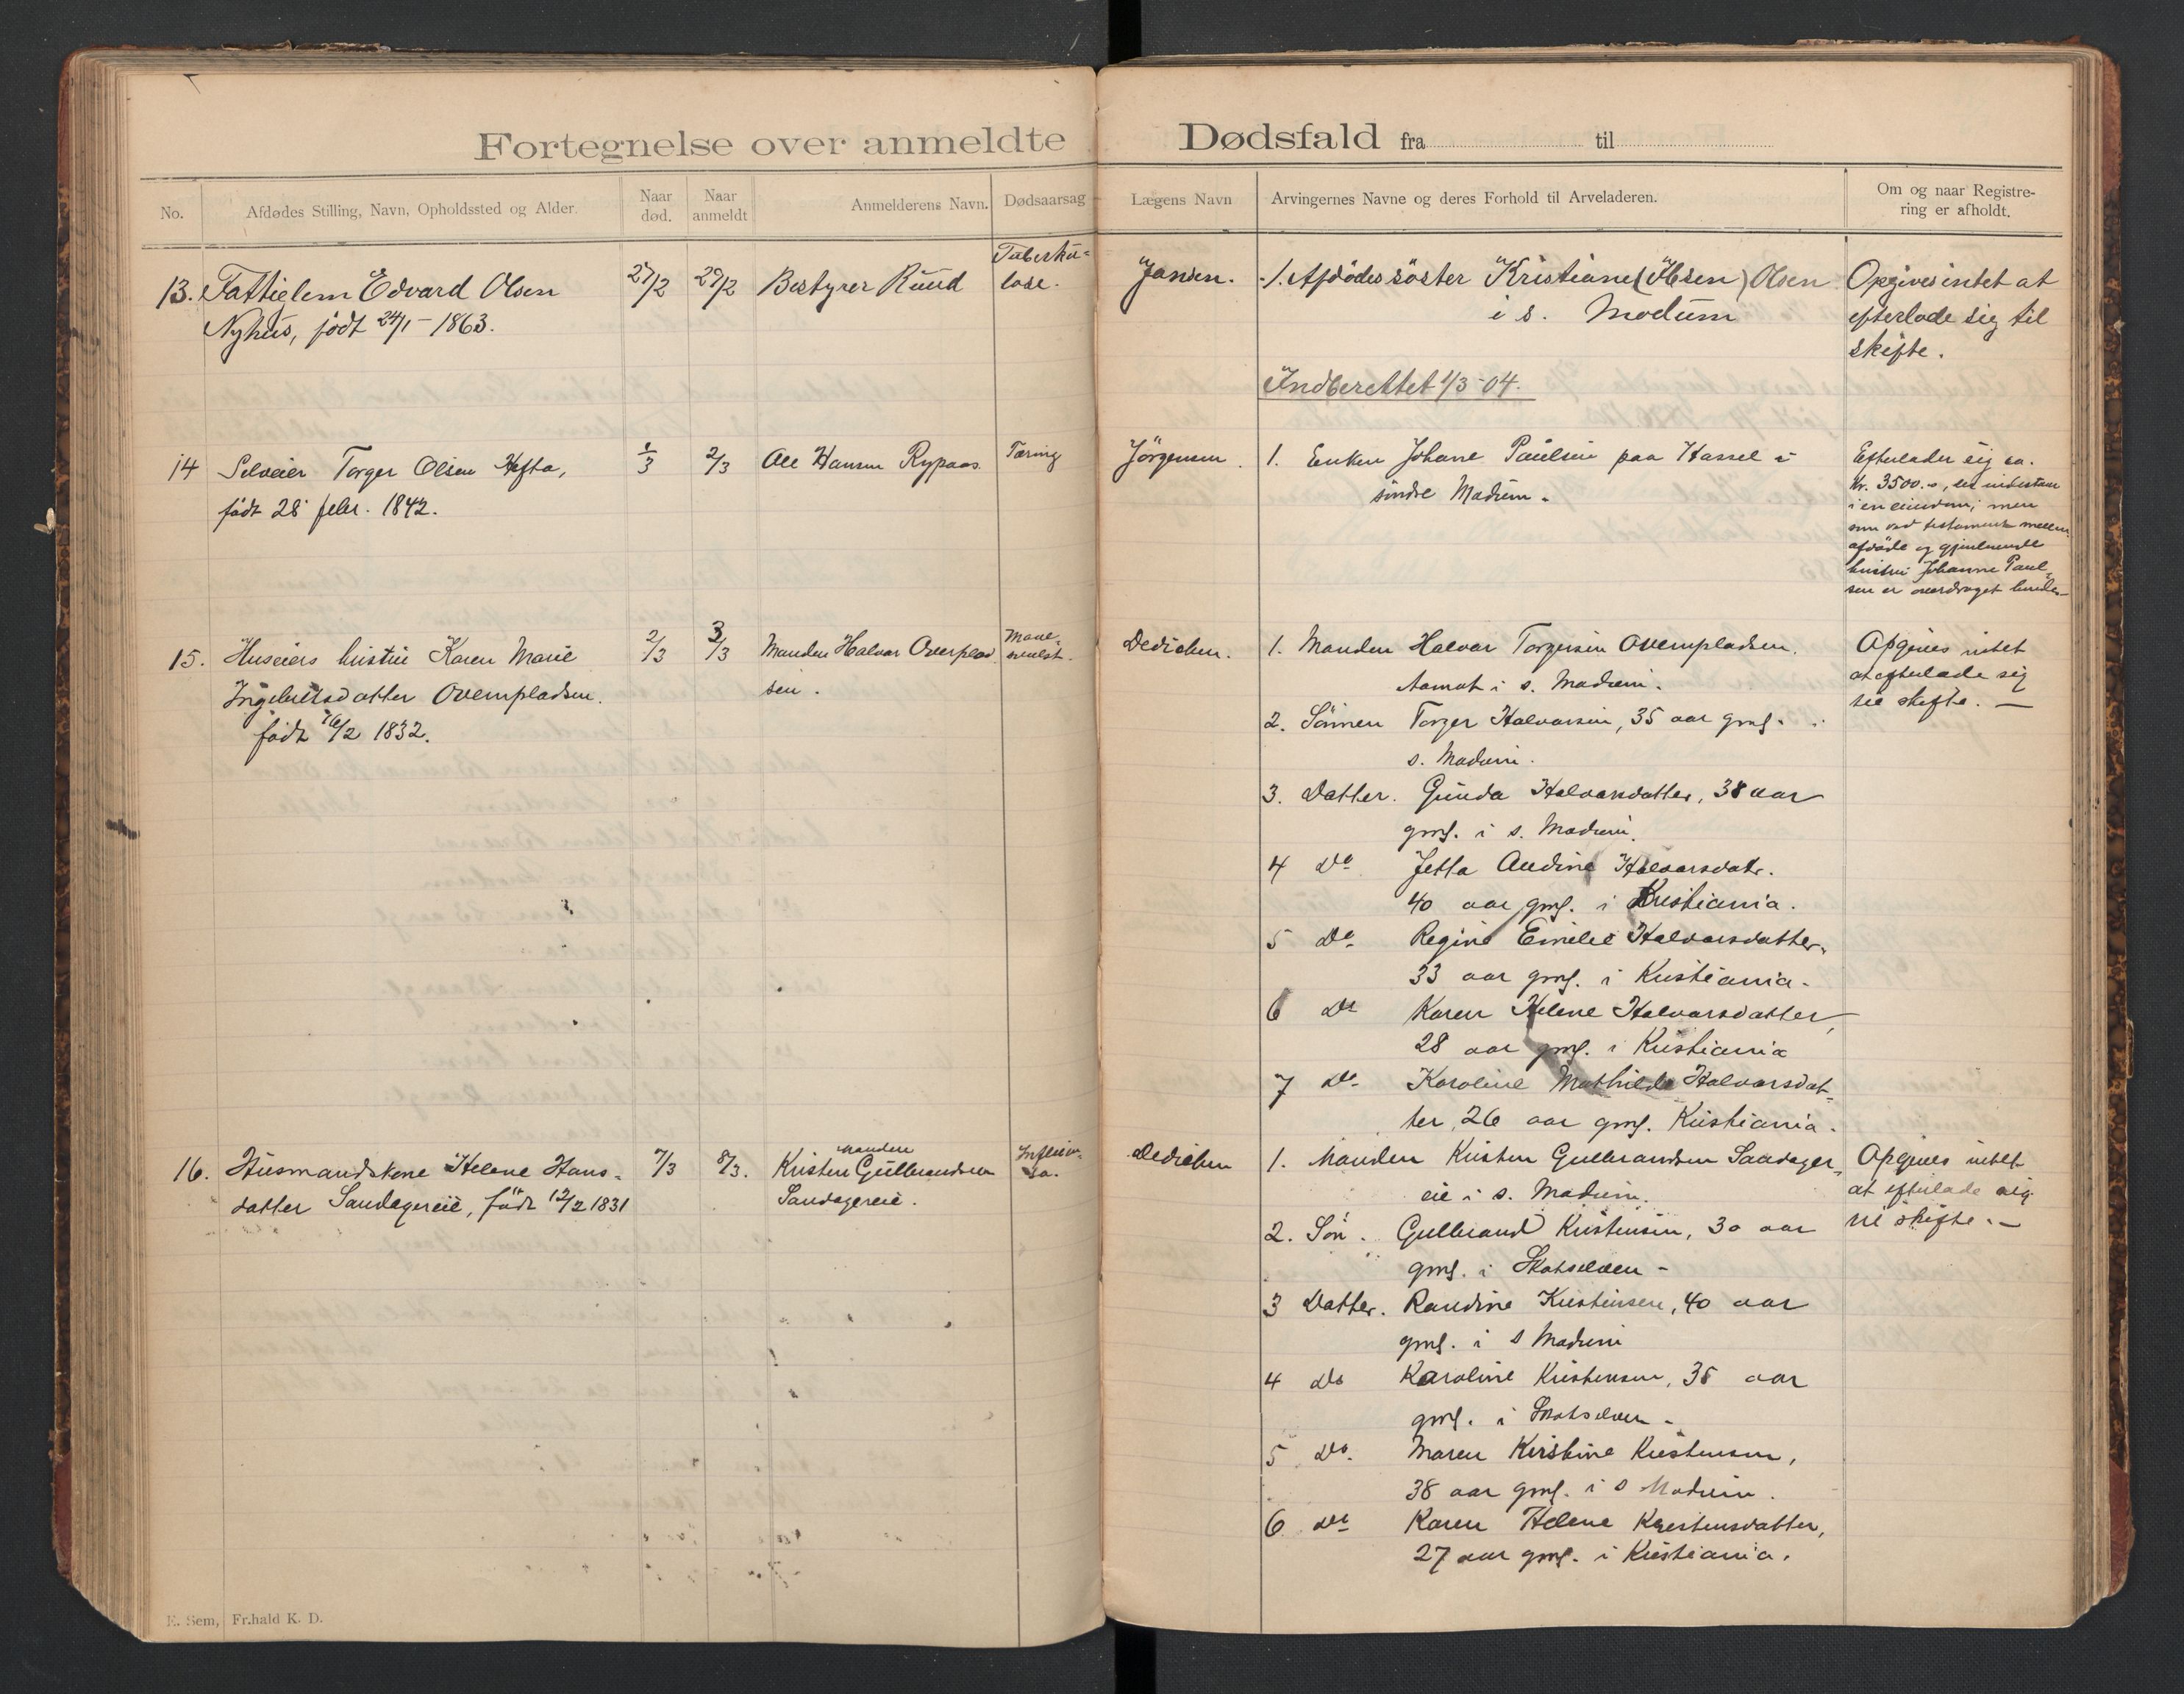 Fortegnelse over anmeldte Dødsfald fra til
No.
Afdødes Stilling, Navn, Opholdssted og Alder.
Naar
død.
Naar
anmeldt
Anmelderens Navn.
Dødsaarsag
Lægens Navn
Arvingernes Navne og deres Forhold til Arveladeren.
Om og naar Registre-
ring er afholdt.
13. Fattiglem Edvard Olsen
Nyhus, født 24/1 - 1863.
27/2
29/2
Bestyrer Ruud
Tuberku-
lose.
Jansen.
1. Afdødes søster Kristiane (Olsen) Olsen
i s. Modum
Opgives intet at
efterlade sig til
skifte.
Indberettet 1/3-04.
14 Selveier Torger Olsen Hefta,
født 28 febr. 1842.
1/3
2/3
Ole Hansen Rypaas
Tæring
Jørgensen.
1. Enken Johane Paulsen paa Hassel i
søndre Modum.
Efterlader sig ca.
Kr. 3500.-, der indestaar
i en eiendom, men
som ved testament mellem
afdøde og gjenlevende
hustru Johanne Paul-
sen er overdraget hende.
15. Huseiers hustru Karen Marie
Ingebretsdatter Overnpladsen.
født 16/2 1832.
2/3
3/3
Manden Halvor Overnplad
sen.
Mave-
svulst.
Dedichen.
1. Manden Halvor Torgersen Overnpladsen.
Aamot i s. Modum.
2. Sønnen Torger Halvorsen, 35 aar gml.
s. Modum.
3. Datter. Gunda Halvorsdatter, 38 aar
gml. i s. Modum.
4 Do Jetta Andine Halvorsdatr.
40 aar gml. i Kristiania.
5 Do. Regine Emelie Halvorsdatter.
33 aar gml. i Kristiania.
6 Do Karen Helene Halvorsdatter,
28 aar gml. i Kristiania
7 Do. Karoline Mathilde Halvorsdat-
ter, 26 aar gml. Kristiania.
Opgives intet
at efterlade sig
til skifte. —
16. Husmandskone Helene Hans-
datter Sandagereie, født 12/2 1831
7/3
8/3.
Manden
Kristen Gulbrandsen
Sandagereie.
Influen-
sa.
Dedichen
1. Manden Kristen Gulbrandsen Sandager-
eie i s. Modum.
2. Søn. Gulbrand Kristensen, 30 aar
gml. i Skotselven -
3 Datter. Randine Kristensen, 40 aar
gml. i s Modum
4 Do Karoline Kristensen, 35 aar
gml. i Skotselven -
5 Do. Maren Kirstine Kristensen,
38 aar gml. i s Modum.
6 Do Karen Helene Kristensdatter,
27 aar gml. i Kristiania.
Opgives intet
at efterlade sig
til skifte. —
E. Sem, Fr.hald K. D.